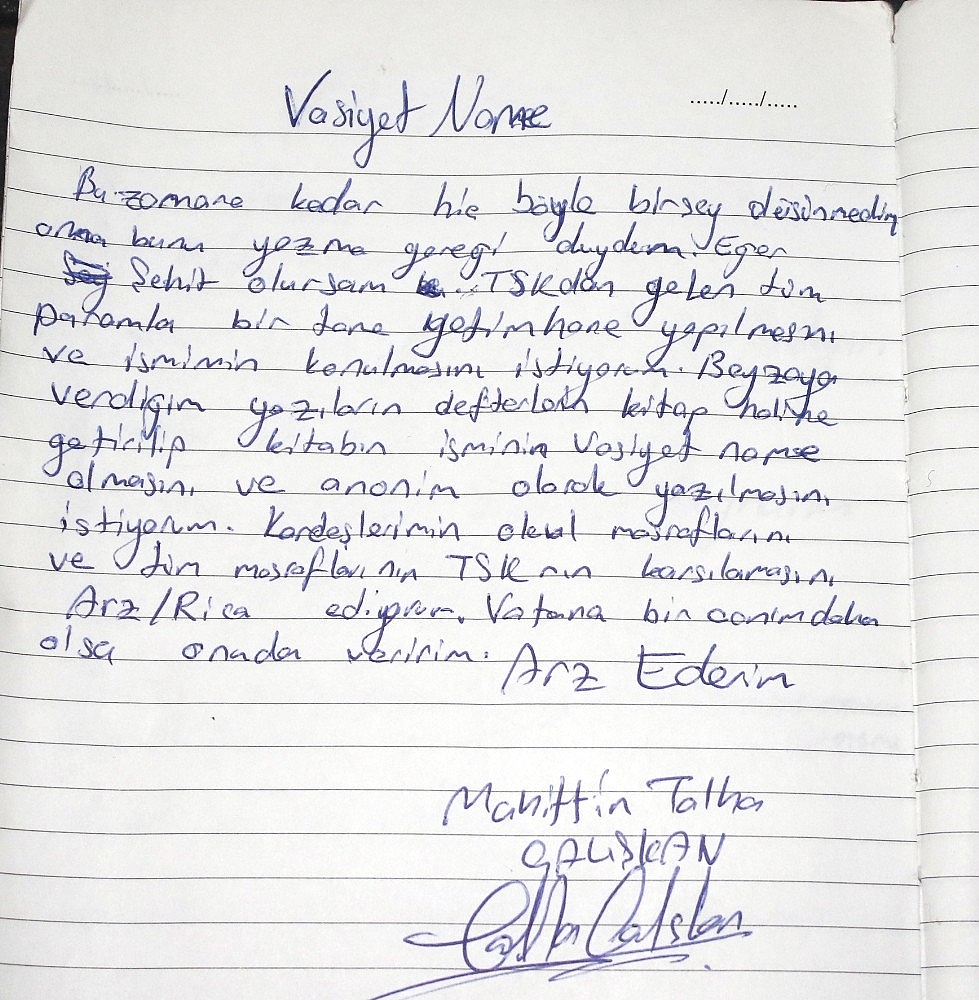 Vasiyet Name
...../...../.....
Bu zamana kadar hiç böyle birşey düşünmedim
ama bunu yazma gereği duydum. Eğer
Şehit olursam TSKdan gelen tüm
paramla bir tane yetimhane yapılmasını
ve isminin konulmasını istiyorum. Beyzaya
verdiğim yazıların defterlerin kitap haline
getirilip kitabın isminin Vasiyet name
olmasını ve anonim olarak yazılmasını
istiyorum. Kardeşlerimin okul masraflarını
ve tüm masraflarının TSK nın karşılamasını
Arz/Rica ediyorum. Vatana bir canım daha
olsa onada veririm. Arz Ederim
Talha
ÇALIŞKAN